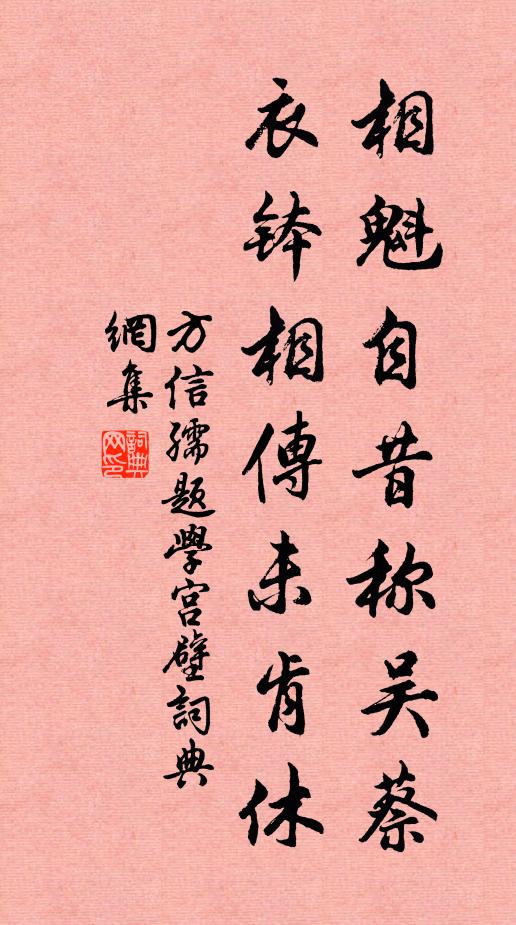 相魁自昔称吴蔡
衣钵相傳未肯休
方信孺题學宫壁詞典
網集
詞典網印